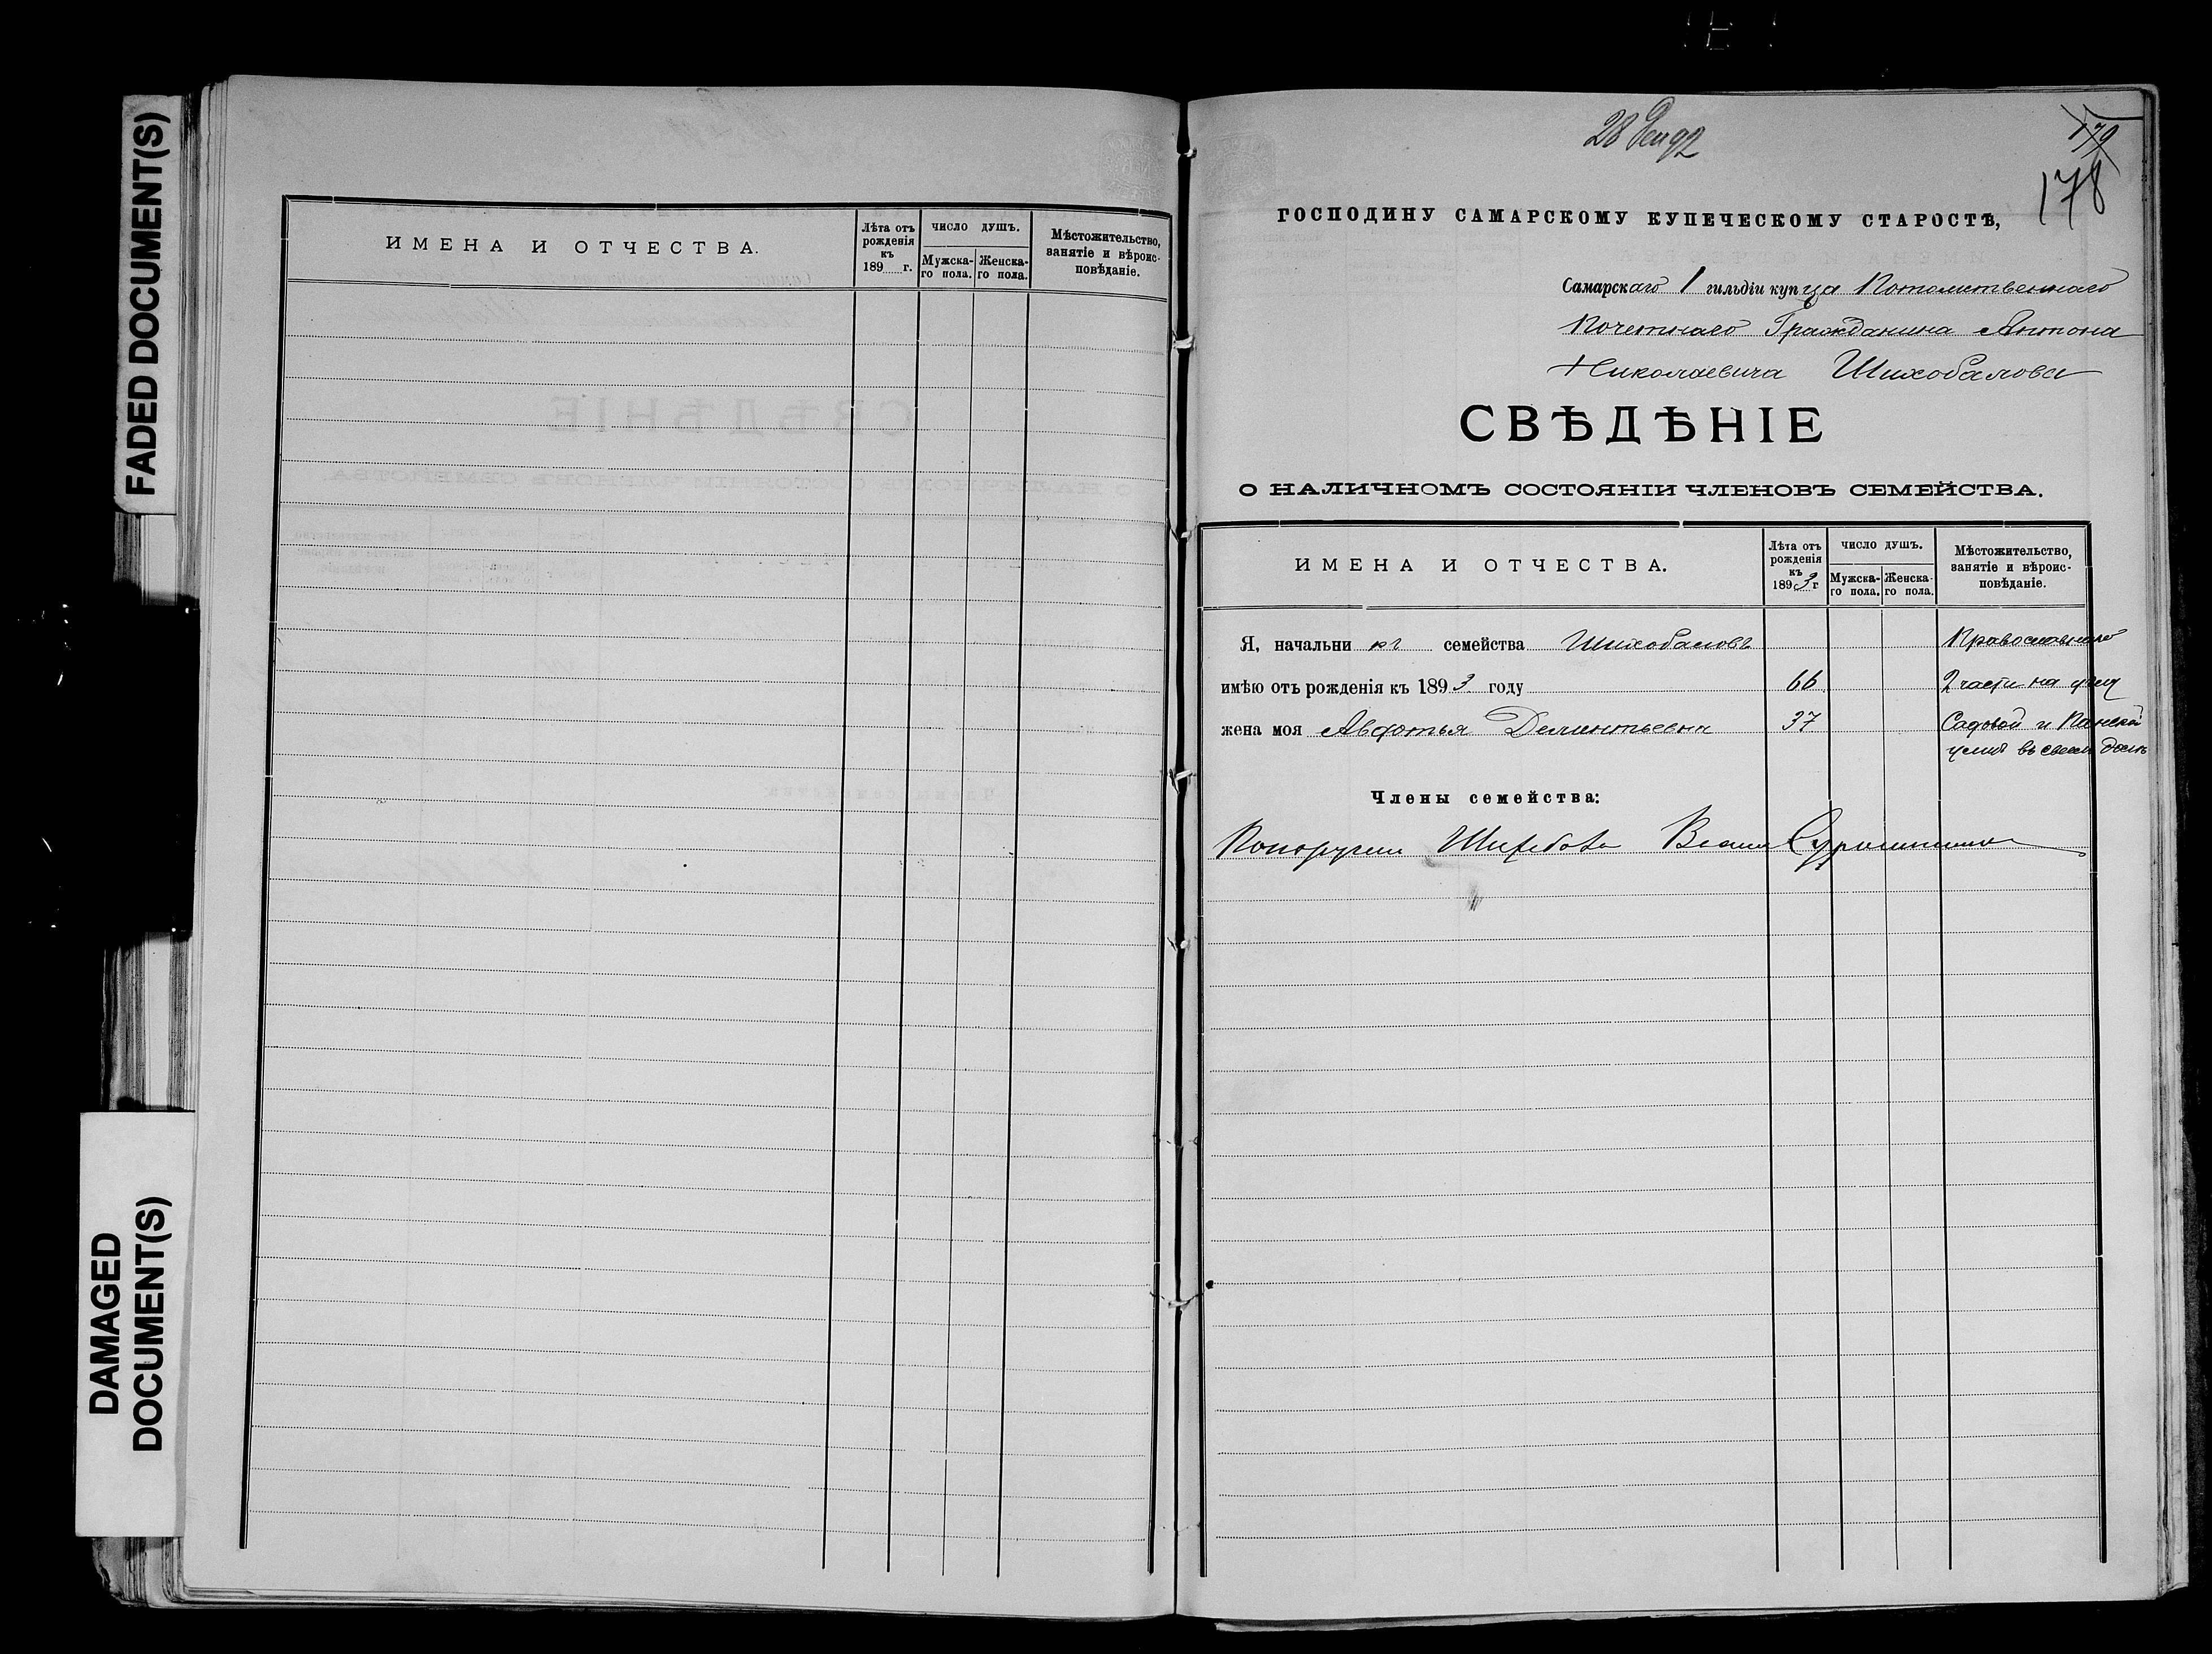 FADED DOCUMENT(S)
DAMAGED
DOCUMENT(S)
ИМЕНА И ОТЧЕСТВА.
Лѣта отъ
рожденія
къ
189 г.
ЧИСЛО ДУШЪ.
Мужска-
го пола.
Женска-
го пола.
Мѣстожительство,
занятіе и вѣроис-
повѣданіе.
28 Дек 92
179
178
ГОСПОДИНУ САМАРСКОМУ КУПЕЧЕСКОМУ СТАРОСТѢ,
Самарскаго 1 гильдіи купца Потомственнаго
Почетнаго Гражданина Антона
Николаевича Шихобалова
СВѢДѢНІЕ
О НАЛИЧНОМЪ СОСТОЯНІИ ЧЛЕНОВЪ СЕМЕЙСТВА.
ИМЕНА И ОТЧЕСТВА.
Лѣта отъ
рожденія
къ
1893 г
ЧИСЛО ДУШЪ.
Мужска-
го пола.
Женска-
го пола.
Мѣстожительство,
занятіе и вѣроис-
повѣданіе.
Я, начальникъ семейства Шихобаловъ Православнаго
имѣю отъ рожденія къ 1893 году 66 2 части на углу
жена моя Авдотья Дементьевна 37 Садовой и Панской
улицъ въ своемъ домѣ
Члены семейства: